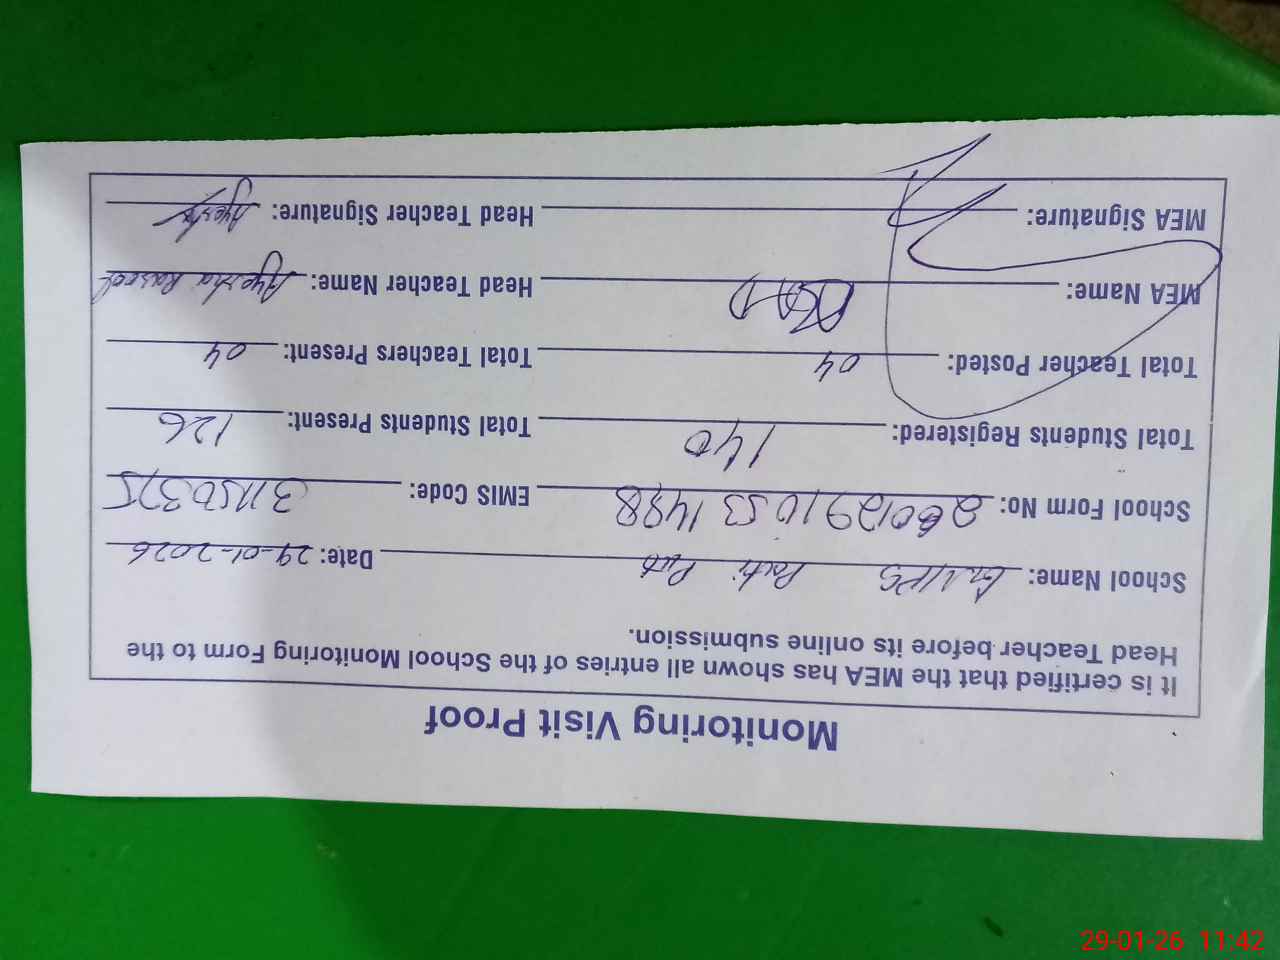 Monitoring Visit Proof
It is certified that the MEA has shown all entries of the School Monitoring Form to the
Head Teacher before its online submission.
School Name: Date: 29-01-2026
School Form No: 26012910531488 EMIS Code: 31150375
Total Students Registered: 140 Total Students Present: 126
Total Teacher Posted: 04 Total Teachers Present: 04
MEA Name: Head Teacher Name: Ayesha Rasool
MEA Signature: Head Teacher Signature: Ayesha
29-01-26 11:42